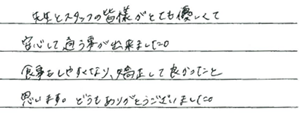 先生とスタッフの皆様がとても優しくて
安心して通う事が出来ました。
食事もしやすくなり、矯正して良かったと
思います。どうもありがとうございました。